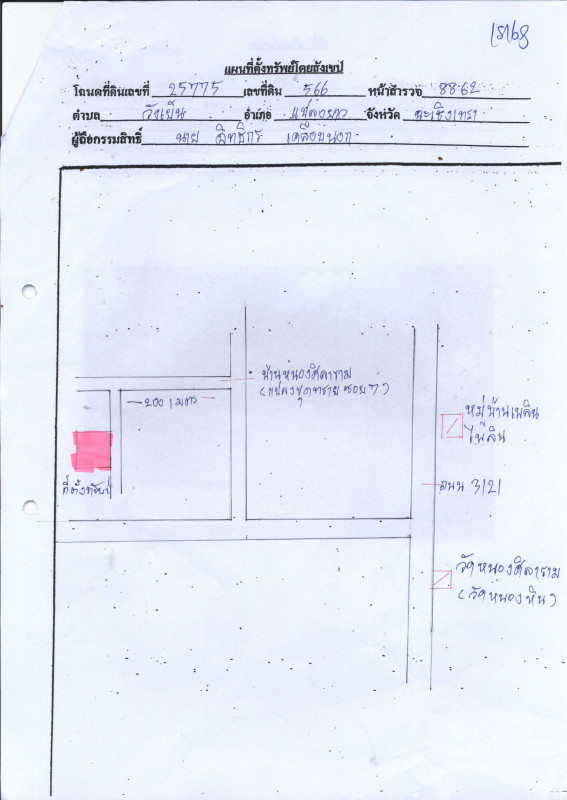 แผนที่ตั้งทรัพย์โดยสังเขป
โฉนดที่ดินเลขที่ 25775 เลขที่ดิน 566 หน้าสำรวจ 8862
ตำบล วังเย็น อำเภอ แปลงยาว จังหวัด ฉะเชิงเทรา
ผู้ถือกรรมสิทธิ์ นาย สิทธิกร
บ้านหนองศิลาราม
(แปลงชุดทราย ซอย 7)
200 เมตร
หมู่บ้านเพลิน
ไพลิน
ที่ตั้งทรัพย์
ถนน 3121
วัดหนองศิลาราม
(วัดหนองหิน)